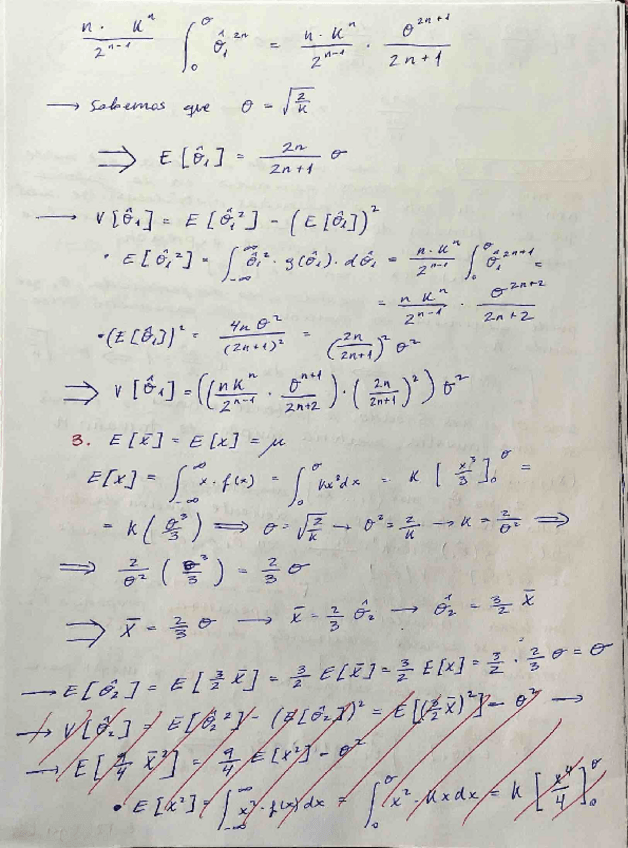 n · K^n / 2^{n-1} ∫_0^θ θ̂_1^{2n} = n · K^n / 2^{n-1} · θ^{2n+1} / 2n+1
→ Sabemos que θ = √(2/K)
⟹ E[θ̂_1] = 2n / 2n+1 θ
→ V[θ̂_1] = E[θ̂_1^2] - (E[θ̂_1])^2
• E[θ̂_1^2] = ∫_{-∞}^{∞} θ̂_1^2 · g(θ̂_1) · dθ̂_1 = n · K^n / 2^{n-1} ∫_0^θ θ̂_1^{2n+1} =
= n K^n / 2^{n-1} · θ^{2n+2} / 2n+2
• (E[θ̂_1])^2 = 4n θ^2 / (2n+1)^2 = (2n / 2n+1)^2 θ^2
⟹ V[θ̂_1] = ((n K^n / 2^{n-1} · θ^{n+1} / 2n+2) · (2n / 2n+1)^2) θ^2
3. E[x̄] = E[x] = μ
E[x] = ∫_{-∞}^{∞} x · f(x) = ∫_0^θ Kx^2 dx = K [x^3/3]_0^θ =
= K (θ^3/3) ⟹ θ = √(2/K) → θ^2 = 2/K → K = 2/θ^2 ⟹
⟹ 2/θ^2 (θ^3/3) = 2/3 θ
⟹ x̄ = 2/3 θ → x̄ = 2/3 θ̂_2 → θ̂_2 = 3/2 x̄
→ E[θ̂_2] = E[3/2 x̄] = 3/2 E[x̄] = 3/2 E[x] = 3/2 · 2/3 θ = θ
→ V[θ̂_2] = E[θ̂_2^2] - (E[θ̂_2])^2 = E[(3/2 x̄)^2] - θ^2 →
→ E[9/4 x̄^2] = 9/4 E[x^2] - θ^2
• E[x^2] = ∫_{-∞}^{∞} x^2 · f(x) dx = ∫_0^θ x^2 · Kx dx = K [x^4/4]_0^θ